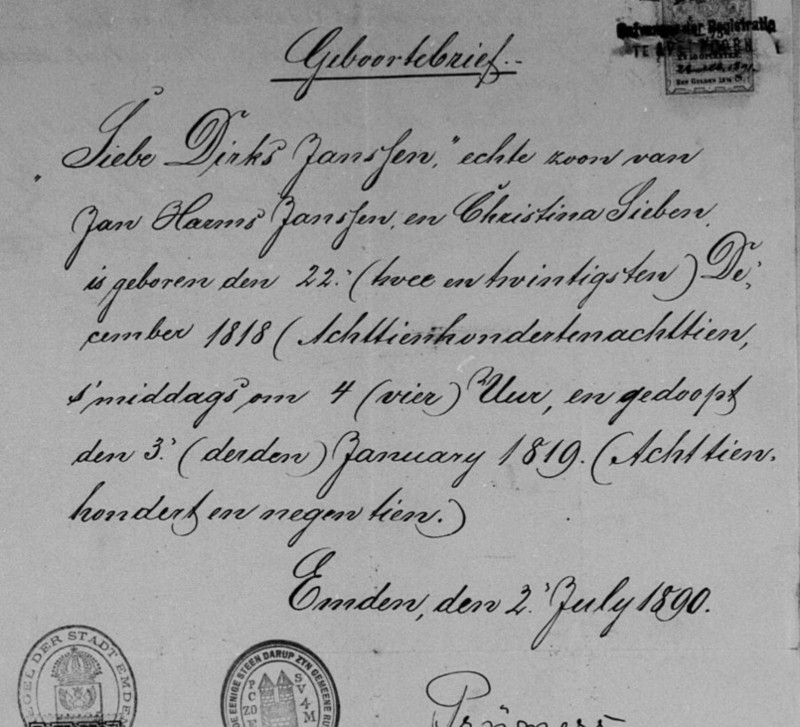 Geboortebrief.
Ontvanger der Registratie
„Siebe Dirks Janssen," echte zoon van
Jan Harms Janssen, en Christina Sieben,
is geboren den 22. (twee en twintigsten) De-
cember 1818 (Achttienhondertenachttien,
s'middags om 4 (vier) Uur, en gedoopt
den 3. (derden) January 1819. (Achttien-
hondert en negentien.)
Emden, den 2. July 1890.
SIEGEL DER STADT EMDEN
DE EENIGE STEEN DARUP ZYN GEMEENE